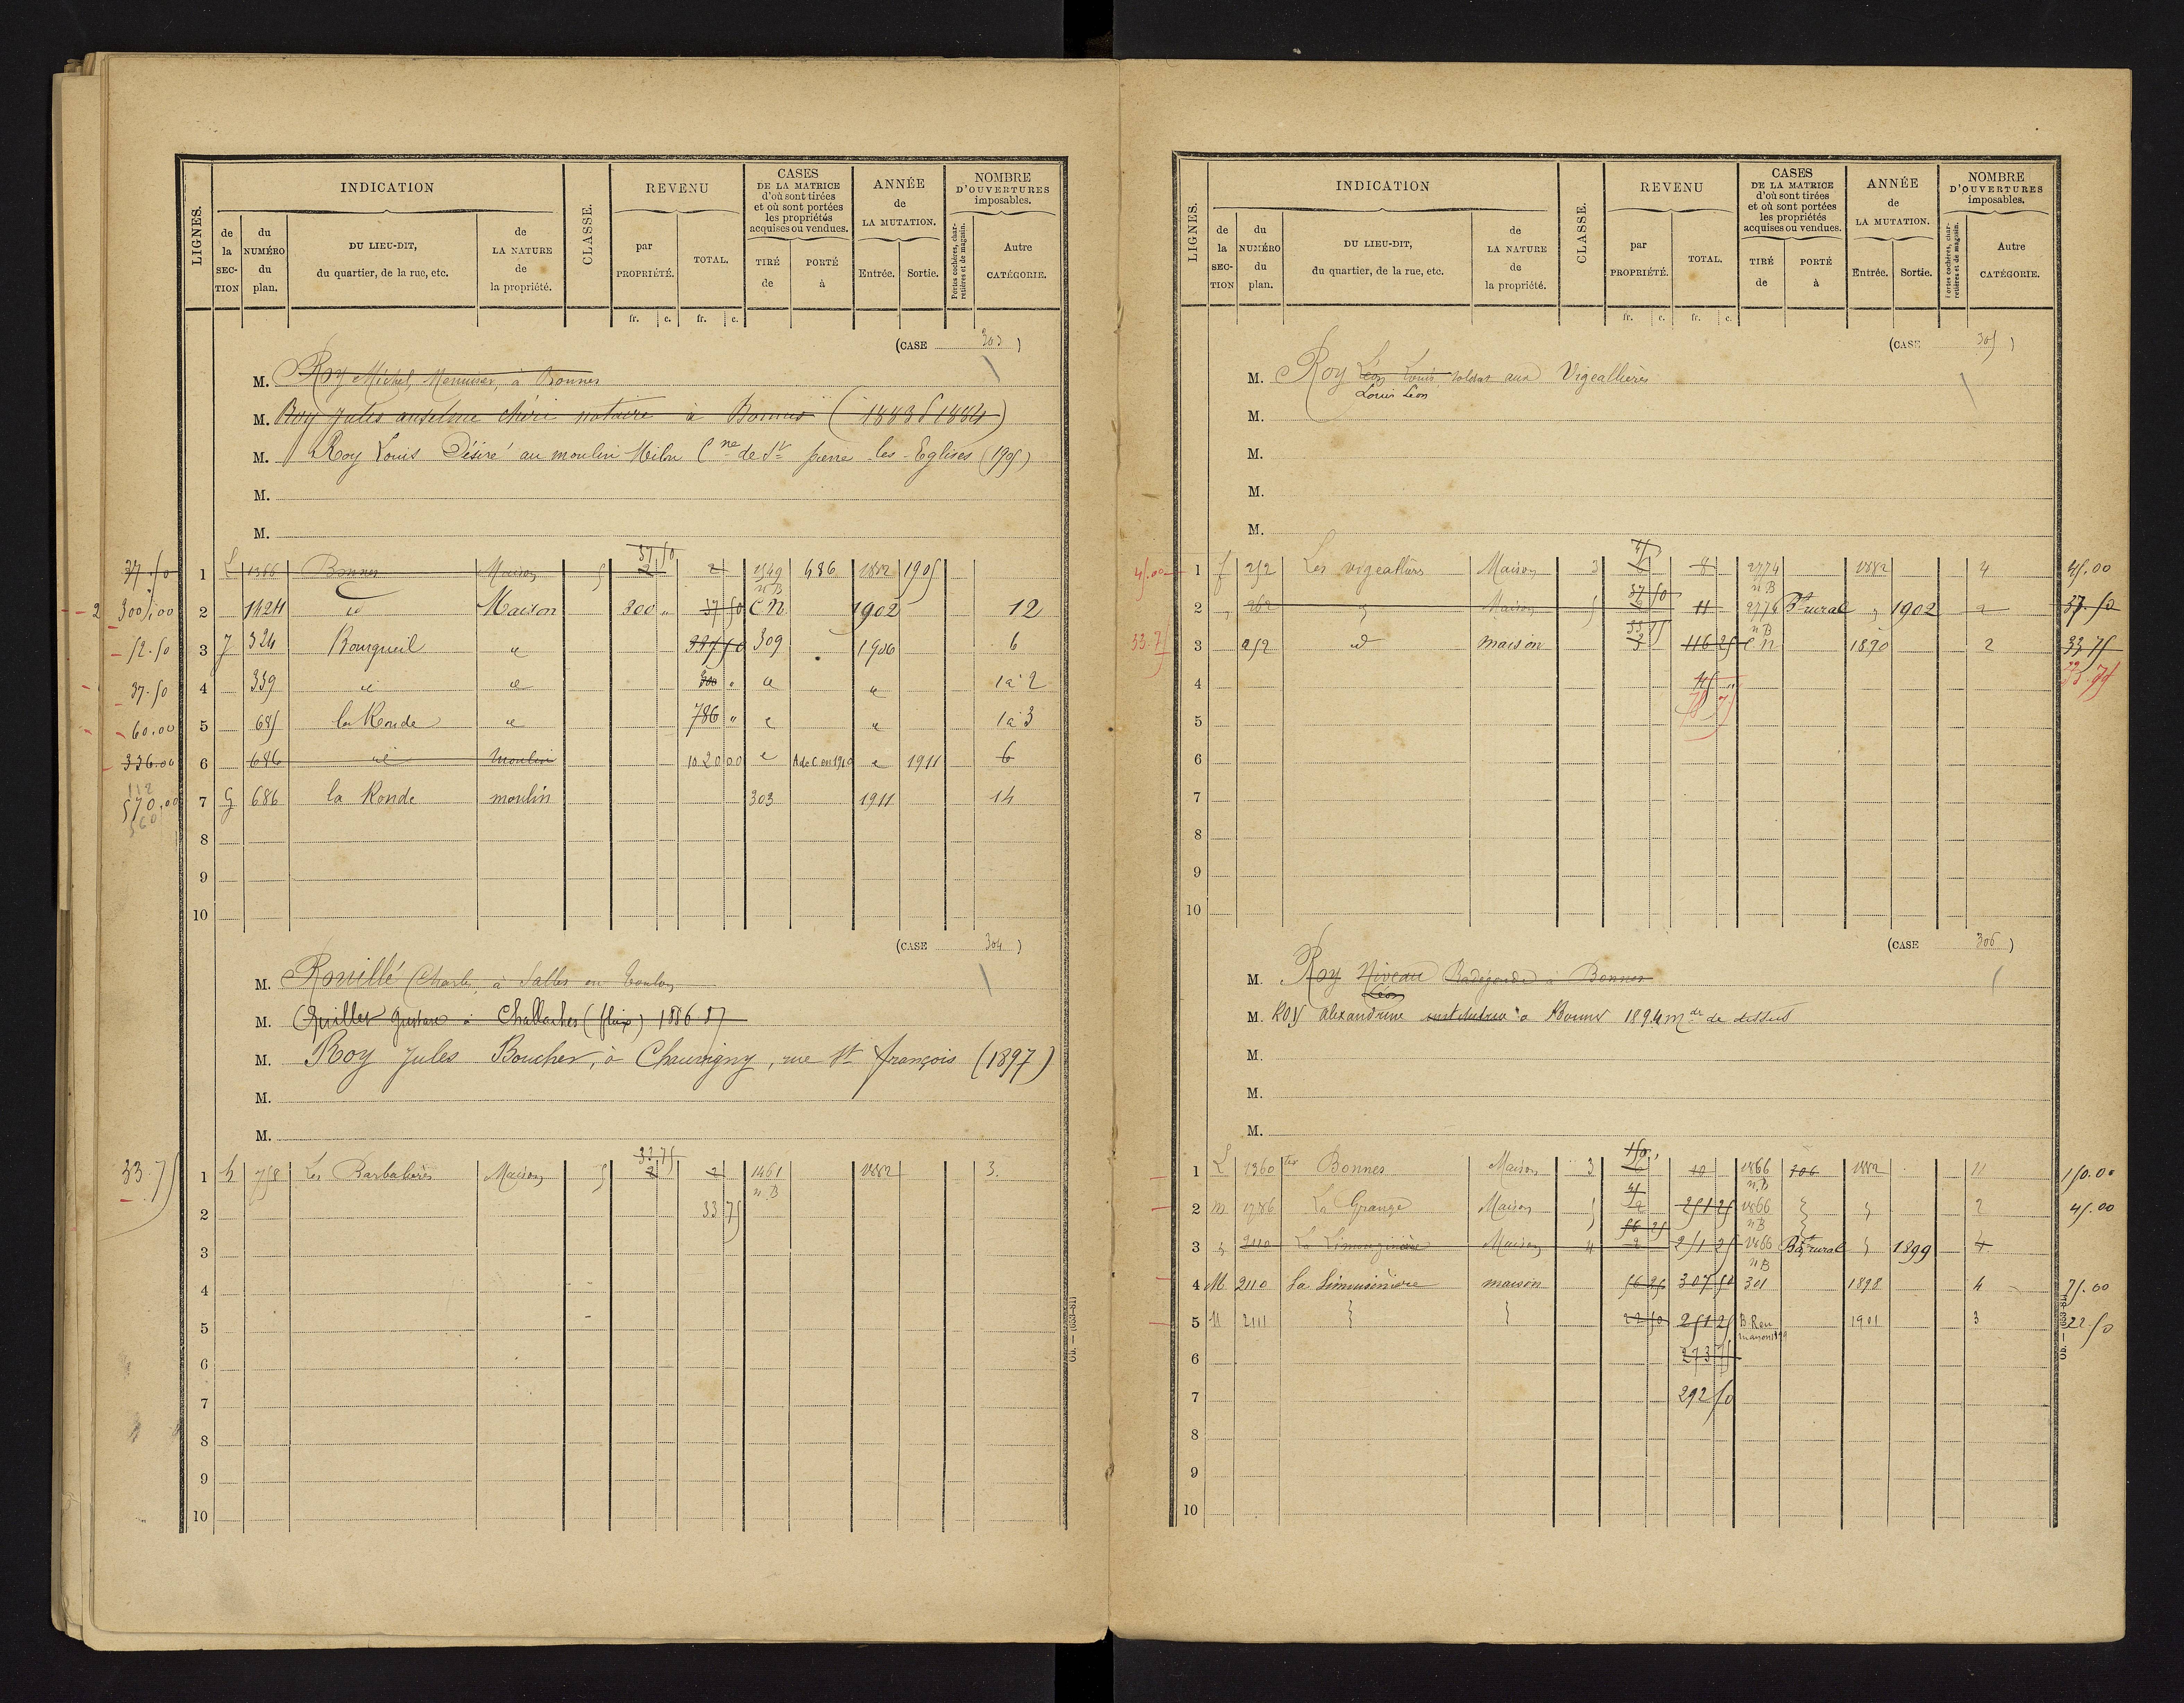 LIGNES. INDICATION CLASSE. REVENU CASES DE LA MATRICE d'où sont tirées et où sont portées les propriétés acquises ou vendues. ANNÉE de LA MUTATION. NOMBRE D'OUVERTURES imposables.
de la SECTION du NUMÉRO du plan. DU LIEU-DIT, du quartier, de la rue, etc. de LA NATURE de la propriété. par PROPRIÉTÉ. TOTAL. TIRÉ de PORTÉ à Entrée. Sortie. Portes cochères, charretières et de magasin. Autre CATÉGORIE.
fr. c. fr. c.
(CASE 303 )
M. Roy Michel, Menuisier, à Bonnes
M. Roy Jules anselme chéri notaire à Bonnes (1883 1884)
M. Roy Louis Désiré au moulin Cne de St pierre les Eglises (1905)
M.
M.
37.50 1 L 1366 Bonnes Maison 5 37 50 2 2 1549 n B 686 1882 1905
2 300,00 2 1424 id Maison 300 " 37 50 C.N. 1902 12
52.50 3 J 324 Bourgueil " 337 50 309 1906 6
37.50 4 339 id id 300 " " " 1 à 2
60.00 5 685 la Ronde " 786 " " " 1 à 3
336.00 6 686 id Moulin 1020 00 " A de C en 1910 " 1911 6
112 570.00 560 7 G 686 la Ronde moulin 303 1911 14
8
9
10
(CASE 304 )
M. Rouillé Charles, à Salles en Toulon
M. Quillet Gustave à (fleix) 1886 87
M. Roy Jules Boucher, à Chauvigny, rue St françois (1897)
M.
M.
33.75 1 h 758 Les Barbalières Maison 5 33 75 2 2 1461 n.B 1882 3.
2 33 75
3
4
5
6
7
8
9
10
LIGNES. INDICATION CLASSE. REVENU CASES DE LA MATRICE d'où sont tirées et où sont portées les propriétés acquises ou vendues. ANNÉE de LA MUTATION. NOMBRE D'OUVERTURES imposables.
de la SECTION du NUMÉRO du plan. DU LIEU-DIT, du quartier, de la rue, etc. de LA NATURE de la propriété. par PROPRIÉTÉ. TOTAL. TIRÉ de PORTÉ à Entrée. Sortie. Portes cochères, charretières et de magasin. Autre CATÉGORIE.
fr. c. fr. c.
(CASE 305 )
M. Roy Léon Louis, soldat aux Vigeallières
Louis Léon
M.
M.
M.
M.
45.00 1 f 252 Les vigeallières Maison 3 45 6 8 2774 n B 1882 4 45.00
2 " 262 " Maison 5 37 50 11 2774 n B Bt rural " 1902 2 37.50
33.75 3 252 d maison 33 75 3 116 25 C n 1890 2 33 75
4 45 " 33.75
5 78 75
6
7
8
9
10
(CASE 306 )
M. Roy Niveau Radégonde à Bonnes
Léon
M. ROY alexandrine institutrice à Bonnes 1894 mde de dessus
M.
M.
M.
1 L 1360 ter Bonnes Maison 3 150 " 6 10 1866 n.B 306 1882 11 150.00
2 m 1786 La Grange Maison 5 45 2 251 25 1866 n B " 2 45.00
3 " 2110 La Limouzinière Maison 4 56 25 2 251 25 1866 n B Bt rural " 1899 4
4 M 2110 la limousinière maison 56 25 307 50 301 1898 4 75.00
5 M 2111 22 50 251 25 B. Ren 1901 3 22.50
6 273 75
7 292 50
8
9
10